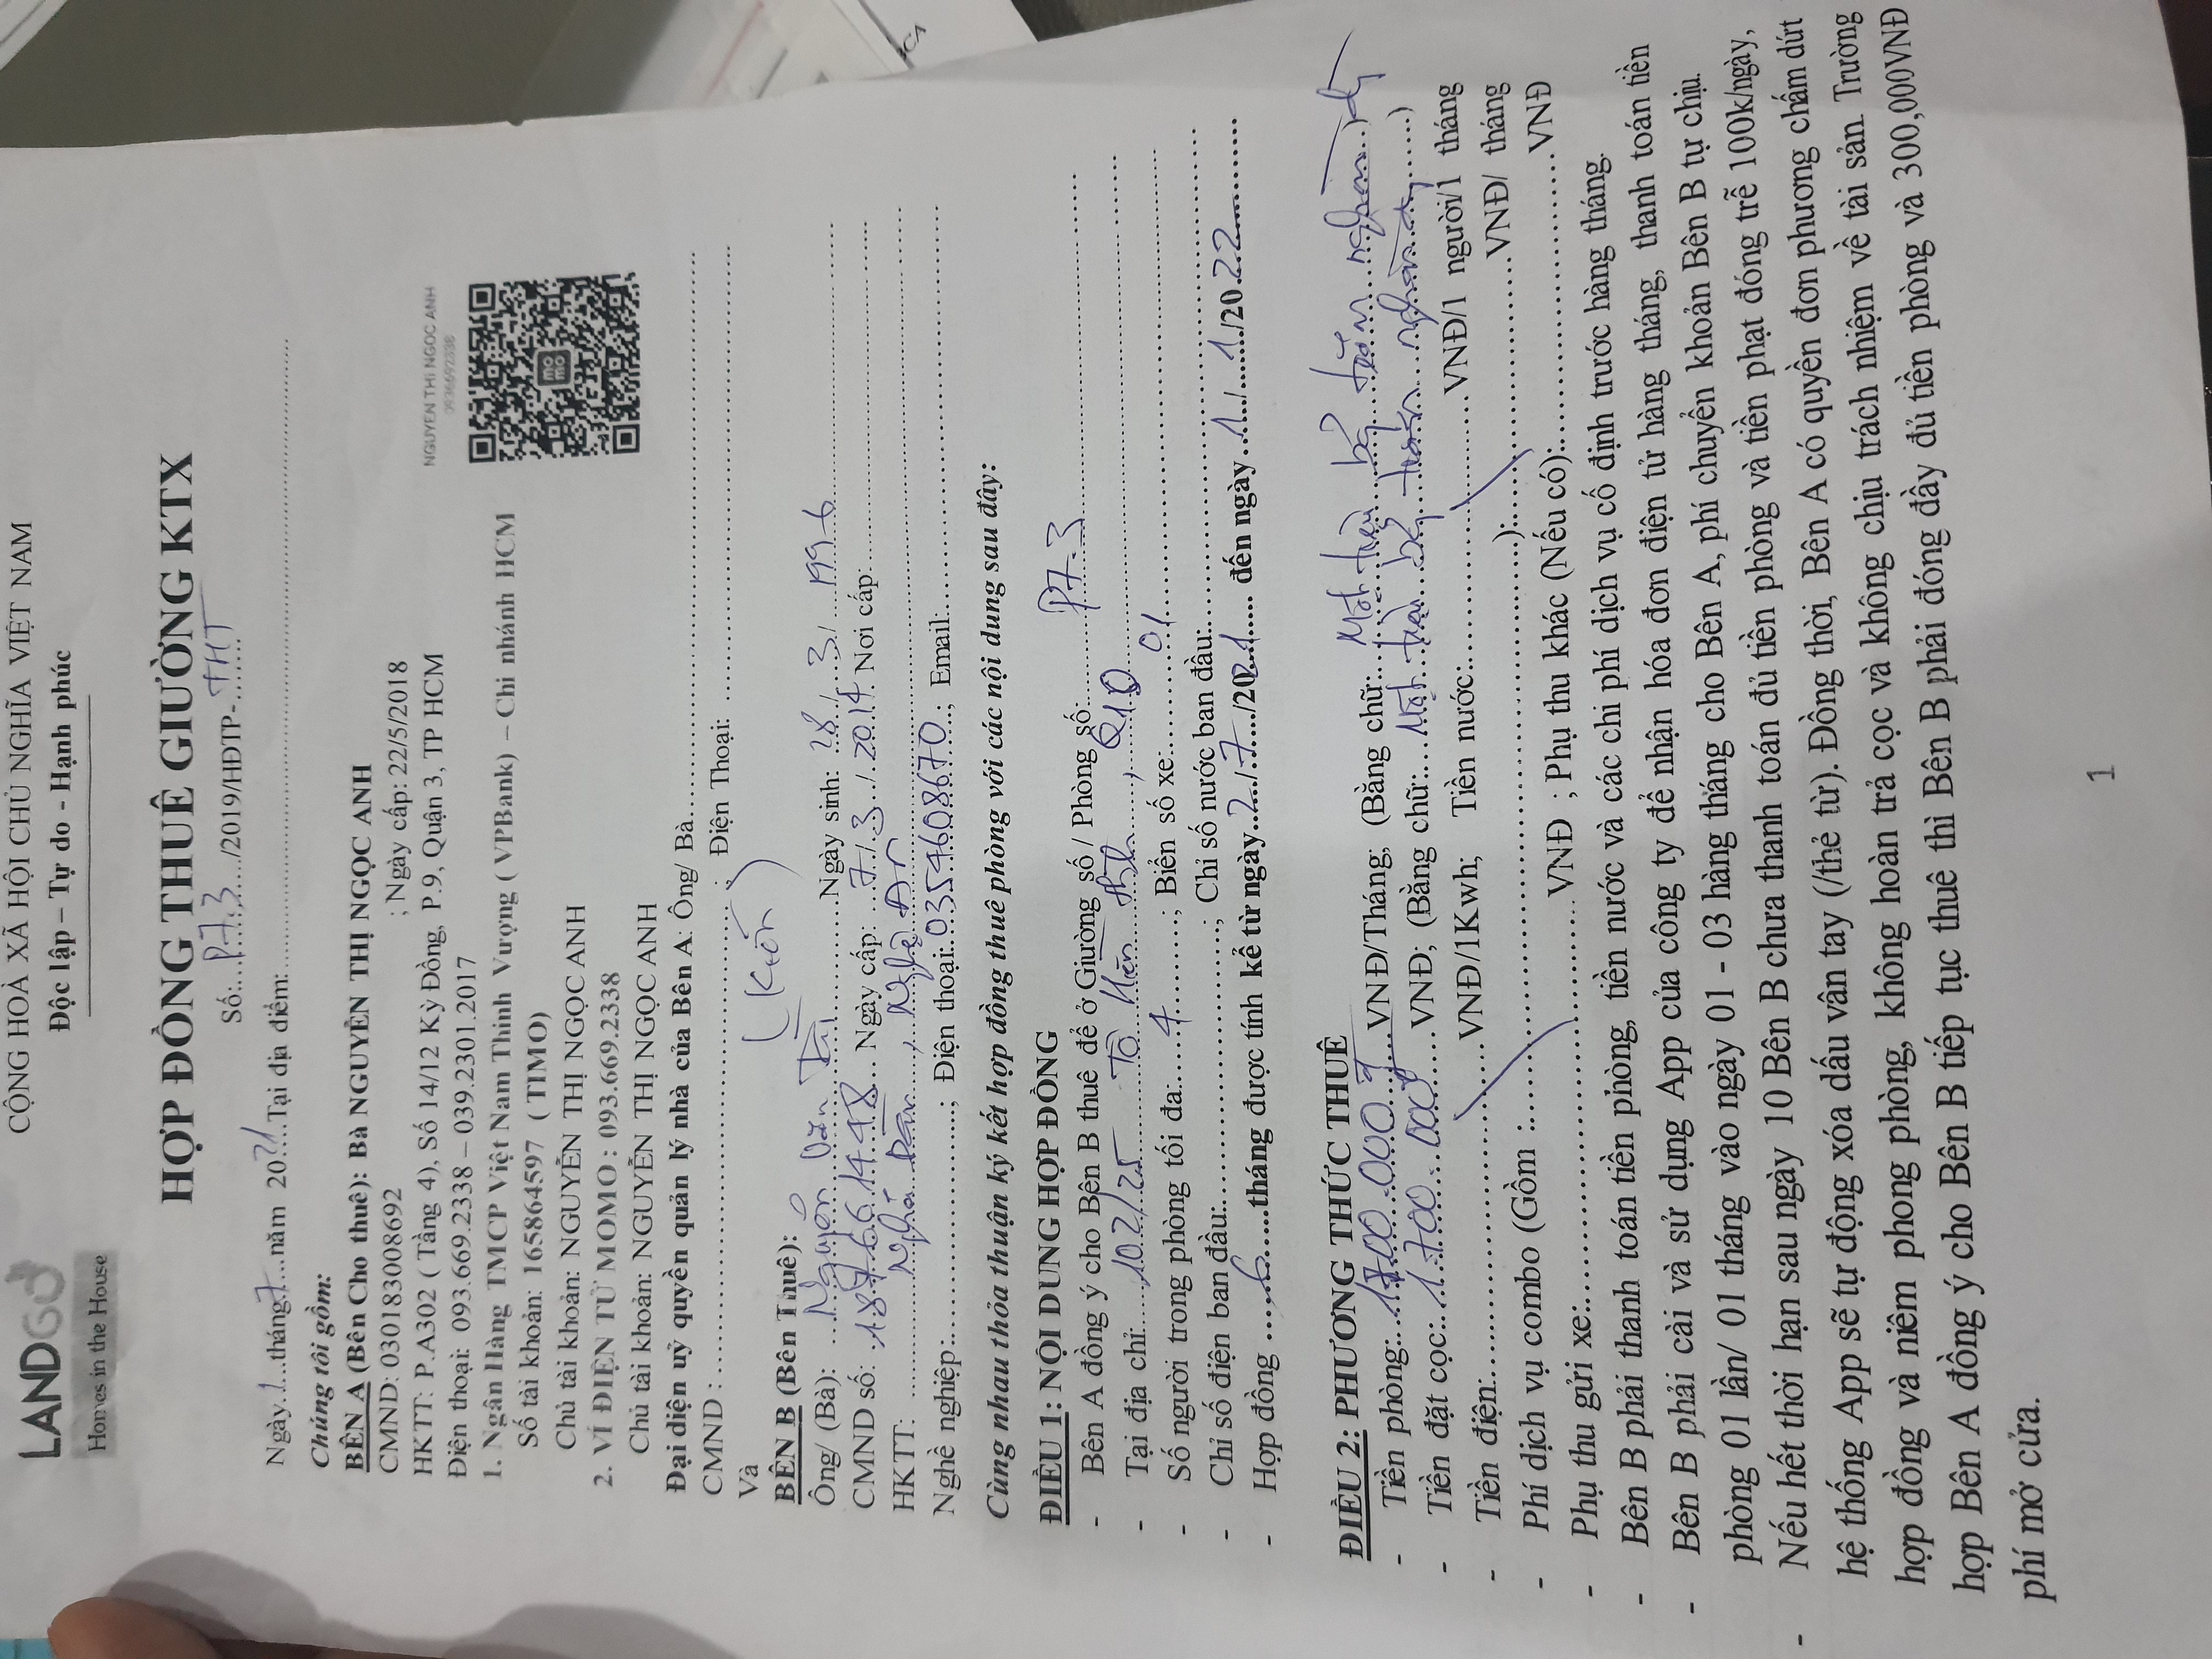 LANDGO
Homes in the House
CỘNG HOÀ XÃ HỘI CHỦ NGHĨA VIỆT NAM
Độc lập – Tự do - Hạnh phúc
HỢP ĐỒNG THUÊ GIƯỜNG KTX
Số:..P.7.3..../2019/HĐTP-..THT
Ngày.1...tháng7...năm 2021...Tại địa điểm:
Chúng tôi gồm:
BÊN A (Bên Cho thuê): Bà NGUYỄN THỊ NGỌC ANH
CMND: 030183008692 ; Ngày cấp: 22/5/2018
HKTT: P.A302 (Tầng 4), Số 14/12 Kỳ Đồng, P.9, Quận 3, TP HCM
Điện thoại: 093.669.2338 – 039.2301.2017
NGUYEN THI NGOC ANH
0936692338
1. Ngân Hàng TMCP Việt Nam Thịnh Vượng ( VPBank) – Chi nhánh HCM
Số tài khoản: 165864597 ( TIMO)
Chủ tài khoản: NGUYỄN THỊ NGỌC ANH
2. VÍ ĐIỆN TỬ MOMO : 093.669.2338
Chủ tài khoản: NGUYỄN THỊ NGỌC ANH
Đại diện uỷ quyền quản lý nhà của Bên A: Ông/ Bà
CMND : Điện Thoại:
Và
BÊN B (Bên Thuê):
Ông/ (Bà): Nguyễn Văn Tài Ngày sinh: 28/3/1996
CMND số: Ngày cấp: 7/3/2014 Nơi cấp:
HKTT: Nghi Văn, Nghệ An
Nghề nghiệp: ; Điện thoại: 0354608670 ; Email:
Cùng nhau thỏa thuận ký kết hợp đồng thuê phòng với các nội dung sau đây:
ĐIỀU 1: NỘI DUNG HỢP ĐỒNG
- Bên A đồng ý cho Bên B thuê để ở Giường số / Phòng số: P7.3
- Tại địa chỉ: 102/25 Tô Hiến Thành, Q10
- Số người trong phòng tối đa: 4 ; Biển số xe: 01
- Chỉ số điện ban đầu: ; Chỉ số nước ban đầu:
- Hợp đồng 6 tháng được tính kể từ ngày 2/7/2021 đến ngày 1/1/2022
ĐIỀU 2: PHƯƠNG THỨC THUÊ
- Tiền phòng: 1700.000đ VNĐ/Tháng; (Bằng chữ: Một triệu bảy trăm nghìn đ)
- Tiền đặt cọc: 1.700.000 VNĐ; (Bằng chữ: Một triệu bảy trăm nghìn đ)
- Tiền điện: VNĐ/1Kwh; Tiền nước: VNĐ/1 người/1 tháng
- Phí dịch vụ combo (Gồm : ): VNĐ/ tháng
- Phụ thu gửi xe: VNĐ ; Phụ thu khác (Nếu có): VNĐ
- Bên B phải thanh toán tiền phòng, tiền nước và các chi phí dịch vụ cố định trước hàng tháng.
- Bên B phải cài và sử dụng App của công ty để nhận hóa đơn điện tử hàng tháng, thanh toán tiền
phòng 01 lần/ 01 tháng vào ngày 01 - 03 hàng tháng cho Bên A, phí chuyển khoản Bên B tự chịu.
- Nếu hết thời hạn sau ngày 10 Bên B chưa thanh toán đủ tiền phòng và tiền phạt đóng trễ 100k/ngày,
hệ thống App sẽ tự động xóa dấu vân tay (/thẻ từ). Đồng thời, Bên A có quyền đơn phương chấm dứt
hợp đồng và niêm phong phòng, không hoàn trả cọc và không chịu trách nhiệm về tài sản. Trường
hợp Bên A đồng ý cho Bên B tiếp tục thuê thì Bên B phải đóng đầy đủ tiền phòng và 300,000VNĐ
phí mở cửa.
1